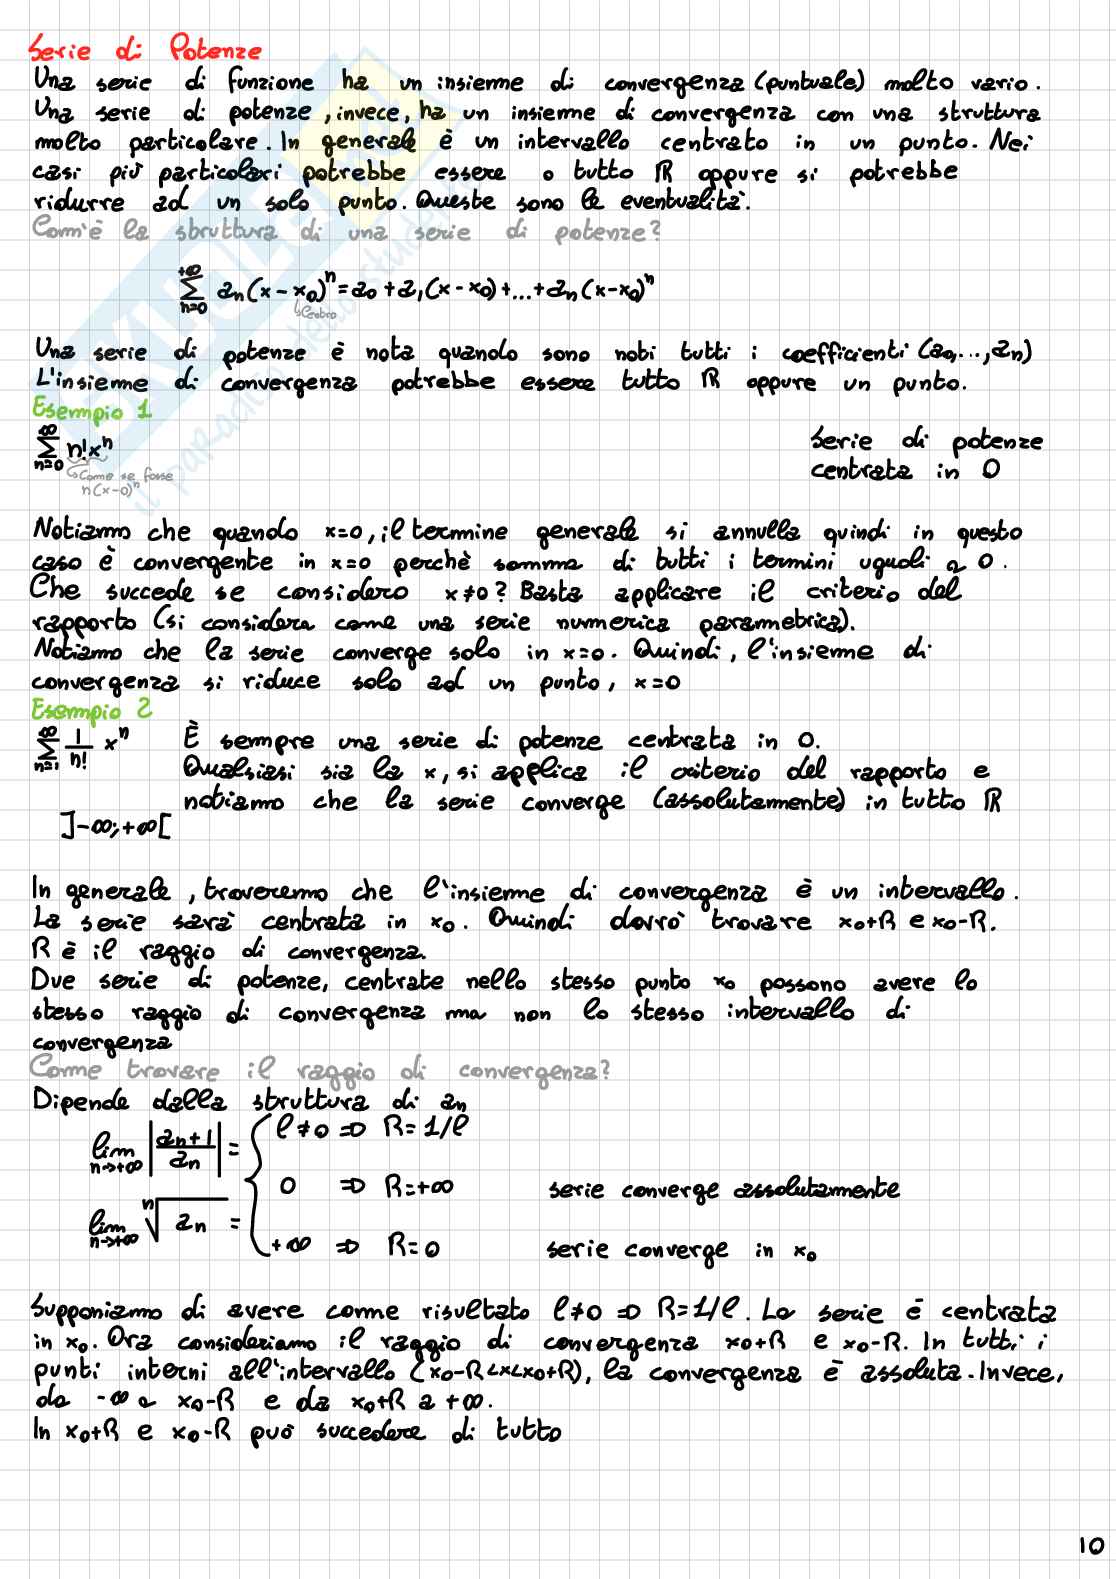 Serie di Potenze
Una serie di funzione ha un insieme di convergenza (puntuale) molto vario.
Una serie di potenze, invece, ha un insieme di convergenza con una struttura
molto particolare. In generale è un intervallo centrato in un punto. Nei
casi più particolari potrebbe essere o tutto ℝ oppure si potrebbe
ridurre ad un solo punto. Queste sono le eventualità.
Com'è la struttura di una serie di potenze?
+∞ ∑ n=0 an(x-x0)^n = a0+a1(x-x0)+...+an(x-x0)^n
↳Centro
Una serie di potenze è nota quando sono noti tutti i coefficienti (a0,...,an)
L'insieme di convergenza potrebbe essere tutto ℝ oppure un punto.
Esempio 1
∞ ∑ n=0 n!x^n
Serie di potenze
centrata in 0
↳Come se fosse
n(x-0)^n
Notiamo che quando x=0, il termine generale si annulla quindi in questo
caso è convergente in x=0 perchè somma di tutti i termini uguali a 0.
Che succede se considero x≠0? Basta applicare il criterio del
rapporto (si considera come una serie numerica parametrica).
Notiamo che la serie converge solo in x=0. Quindi, l'insieme di
convergenza si riduce solo ad un punto, x=0
Esempio 2
∞ ∑ n=1 1/n! x^n
È sempre una serie di potenze centrata in 0.
Qualsiasi sia la x, si applica il criterio del rapporto e
notiamo che la serie converge (assolutamente) in tutto ℝ
]-∞;+∞[
In generale, troveremo che l'insieme di convergenza è un intervallo.
La serie sarà centrata in x0. Quindi dovrò trovare x0+R e x0-R.
R è il raggio di convergenza.
Due serie di potenze, centrate nello stesso punto x0 possono avere lo
stesso raggio di convergenza ma non lo stesso intervallo di
convergenza
Come trovare il raggio di convergenza?
Dipende dalla struttura di an
lim n→+∞ |an+1/an| = { ℓ≠0 ⇒ R=1/ℓ
0 ⇒ R=+∞ serie converge assolutamente
lim n→+∞ n√an =
+∞ ⇒ R=0 serie converge in x0
Supponiamo di avere come risultato ℓ≠0 ⇒ R=1/ℓ. La serie è centrata
in x0. Ora consideriamo il raggio di convergenza x0+R e x0-R. In tutti i
punti interni all'intervallo (x0-R<x<x0+R), la convergenza è assoluta. Invece,
da -∞ a x0-R e da x0+R a +∞.
In x0+R e x0-R può succedere di tutto
10